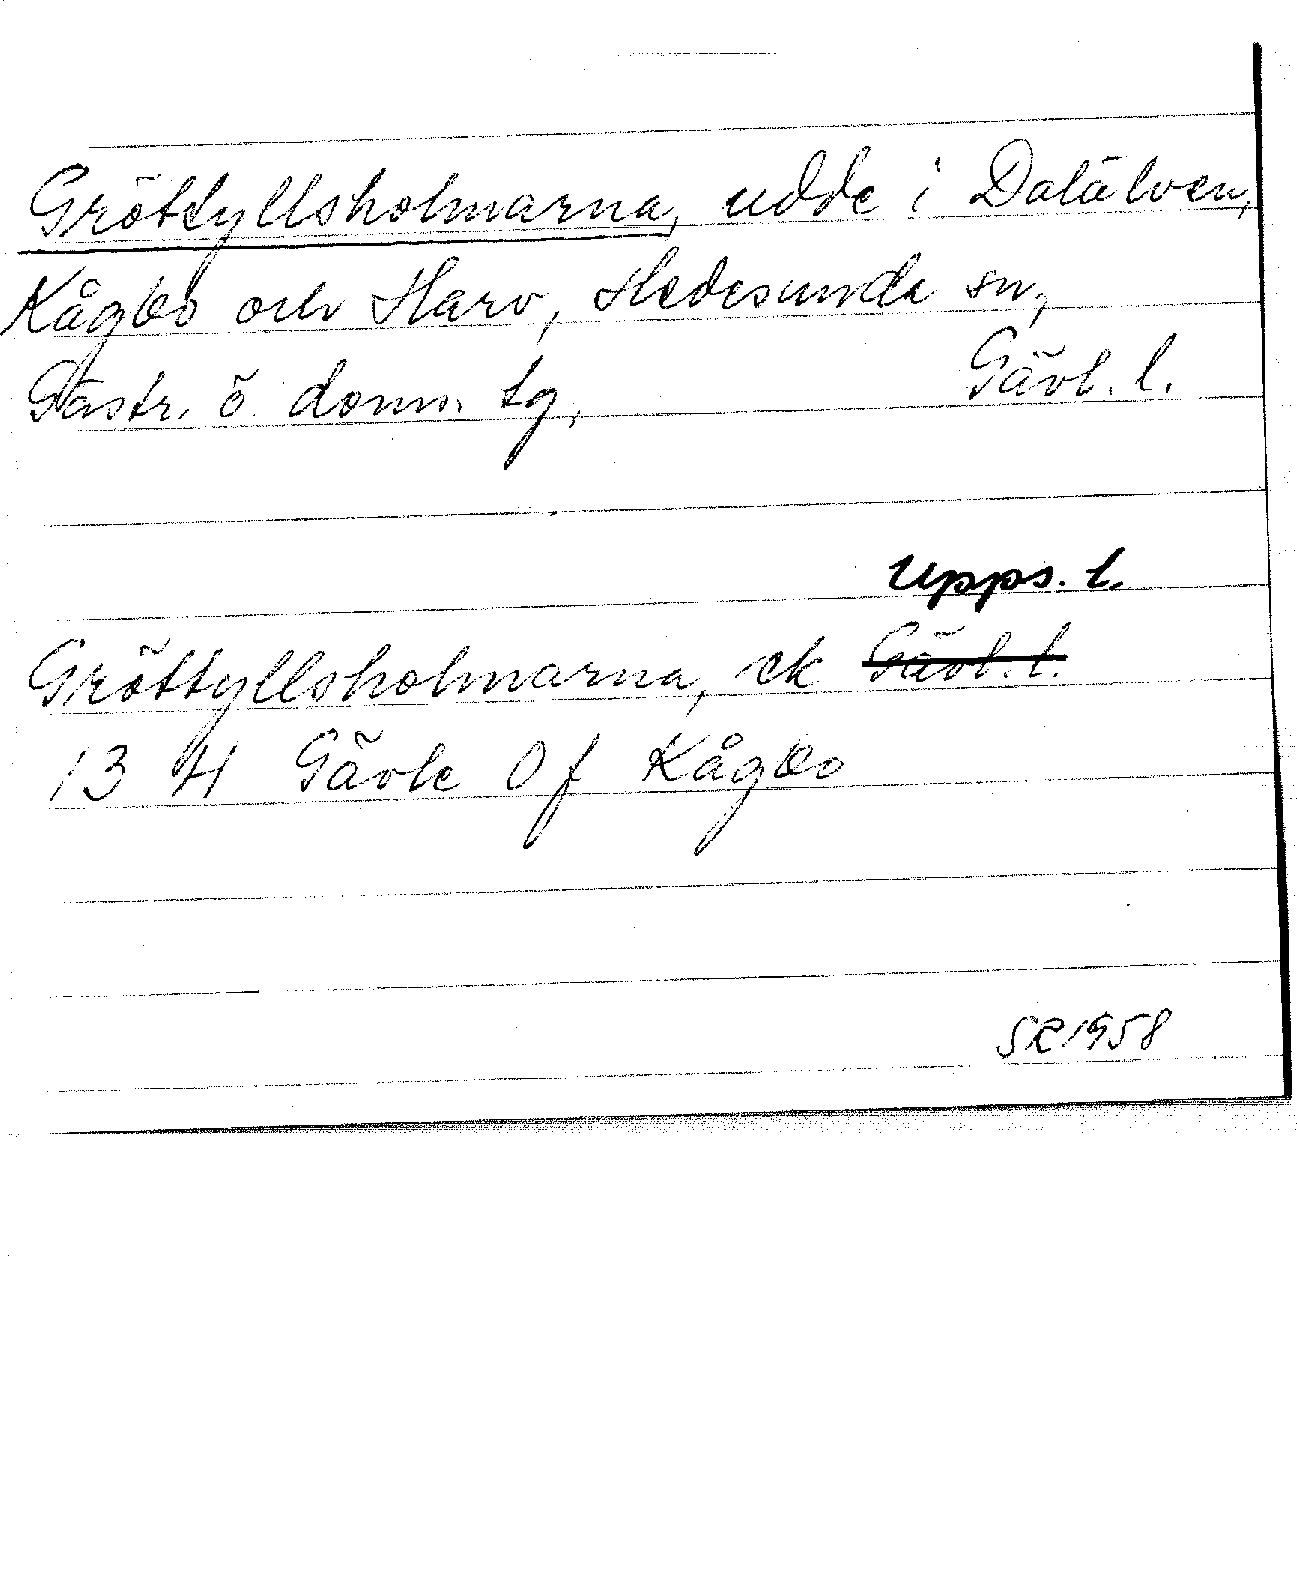 Gröttyllsholmarna, udde i Dalälven,
Kågbo och Harv, Hedesunda sn,
Gästr. ö. doms. tg, Gävl. l.
Upps. l.
Gröttyllsholmarna, ek Gävl. l.
13 H Gävle 0 f Kågbo
SR 1958